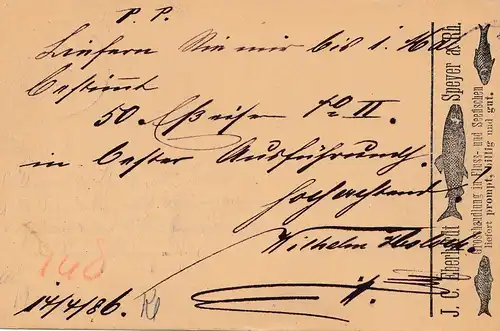 P. P.
Liefern Sie mir bis 1. Mai
bestimmt
50 Speise No II.
in bester Ausführung.
Hochachtend
Wilhelm
148
14/4/86.
J. C. Eberhardt Speyer a. Rh.
Grosshandlung in Fluss- und Seefischen
liefert prompt, billig und gut.